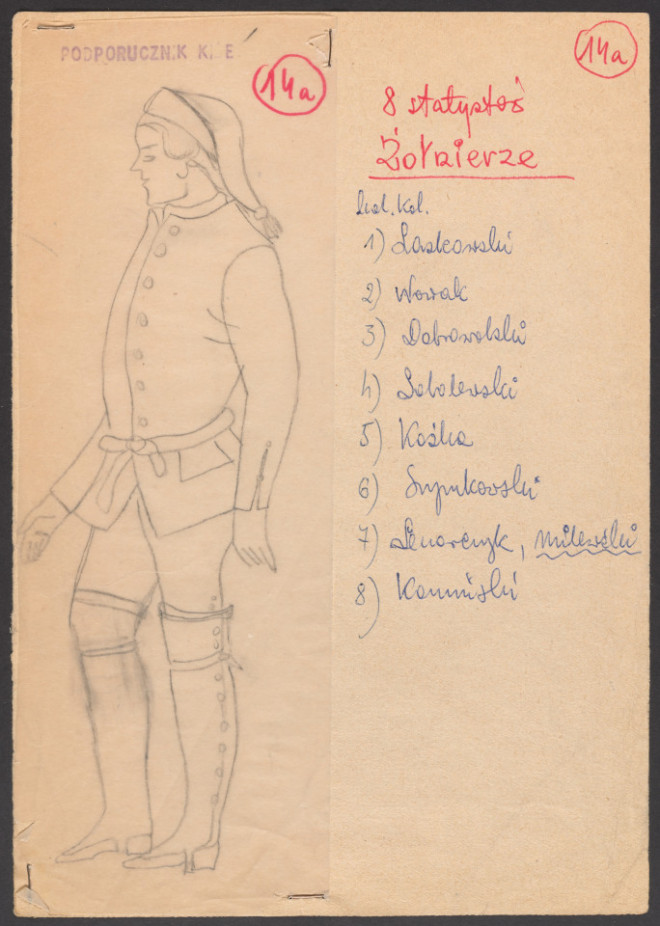 PODPORUCZNIK K. E
14a
14a
8 statystów
Żołnierze
1) Laskowski
2) Nowak
3) Dobrowolski
4) Sobolewski
5) Kośka
6)
7) , Milewski
8) Kamiński